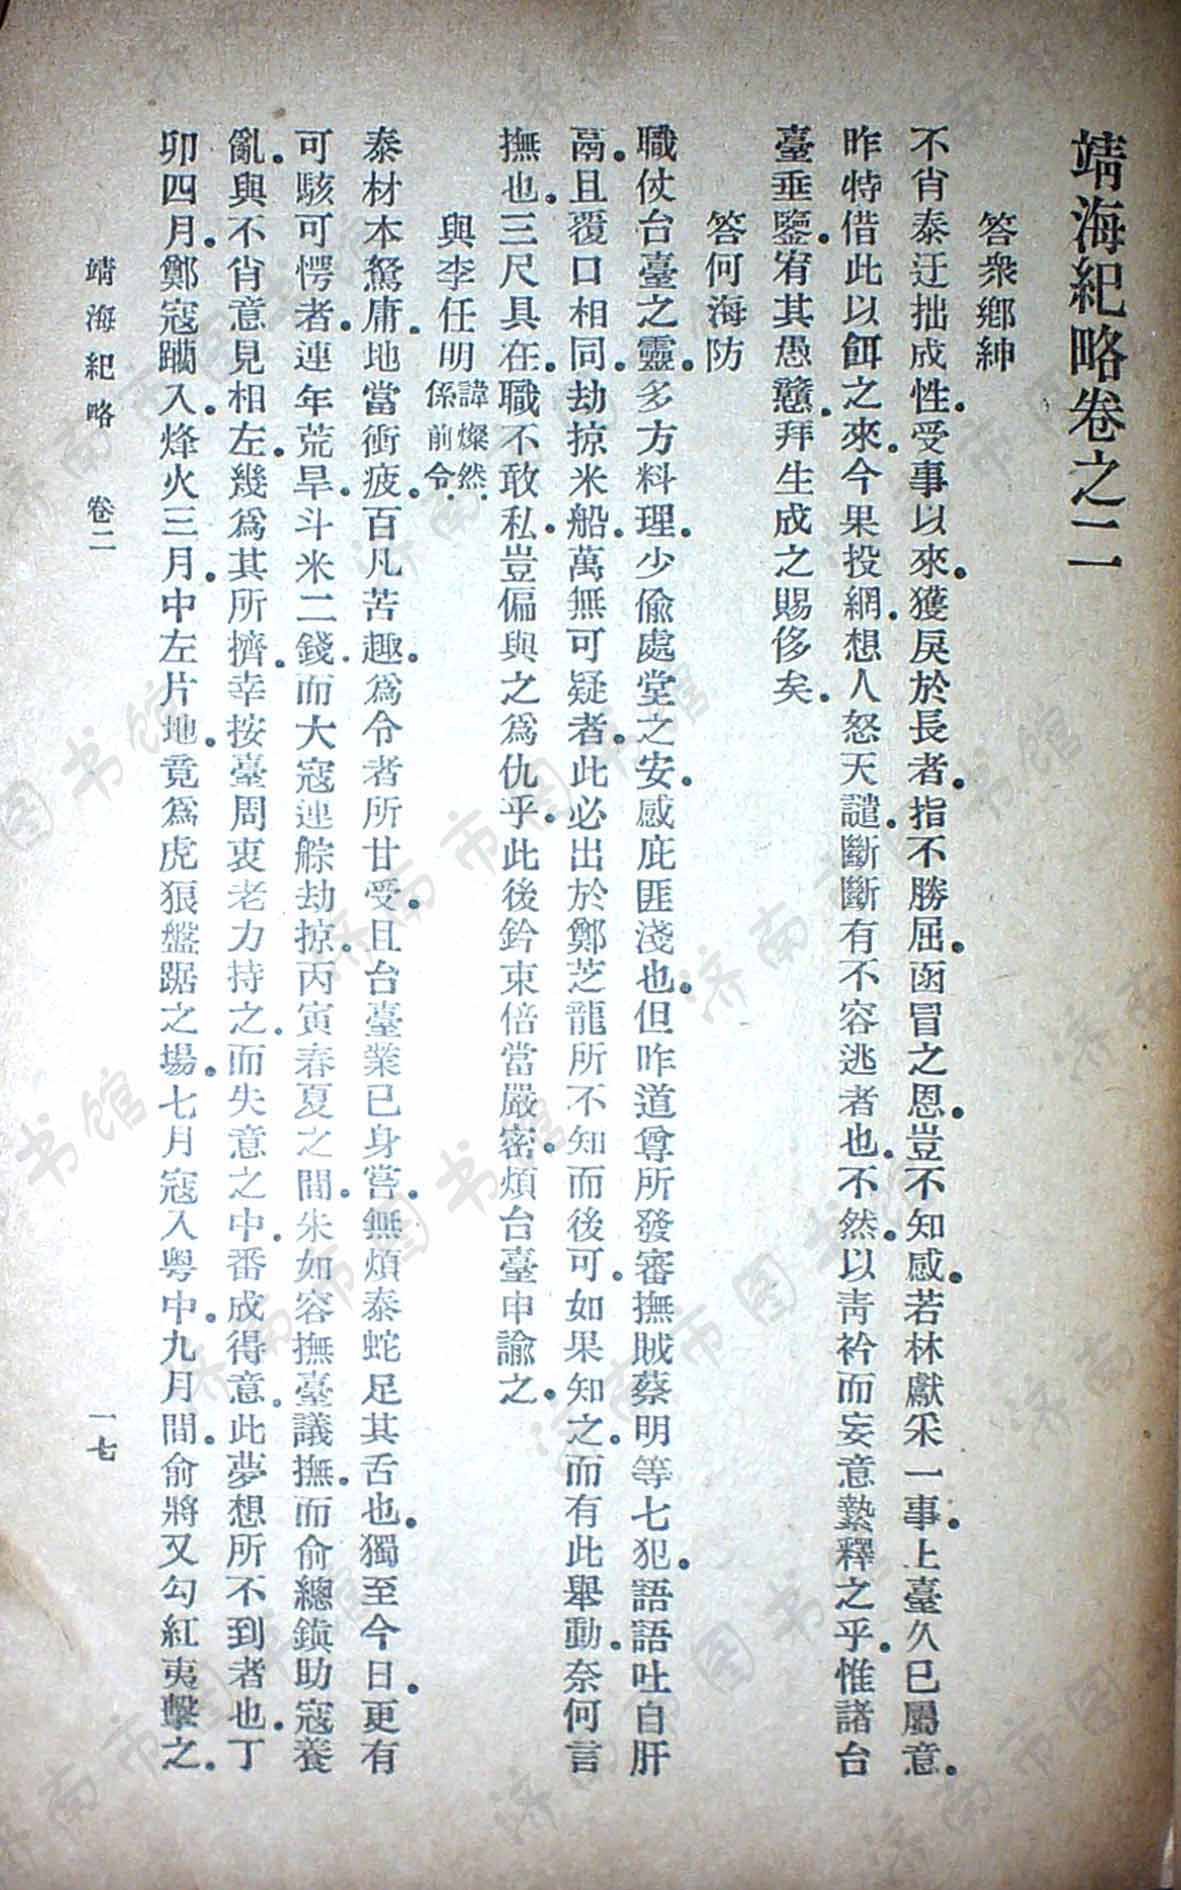 靖海紀略卷之二
答衆鄉紳
不肖泰迂拙成性。受事以來。獲戾於長者。指不勝屈。函冒之恩。豈不知感。若林獻采一事。上臺久已屬意。
昨特借此以餌之來。今果投網。想人怒天譴。斷斷有不容逃者也。不然。以靑衿而妄意縶釋之乎。惟諸台
臺垂鑒。宥其愚戇。拜生成之賜侈矣。
答何海防
職仗台臺之靈。多方料理。少偷處堂之安。感庇匪淺也。但昨道尊所發審撫賊蔡明等七犯。語語吐自肝
鬲。且覆口相同。劫掠米船。萬無可疑者。此必出於鄭芝龍所不知而後可。如果知之。而有此舉動。奈何言
撫也。三尺具在。職不敢私。豈偏與之爲仇乎。此後鈐束倍當嚴密。煩台臺申諭之。
與李任明諱燦然。係前令。
泰材本駑庸。地當衝疲。百凡苦趣。爲令者所甘受。且台臺業已身嘗。無煩泰蛇足其舌也。獨至今日。更有
可駭可愕者。連年荒旱。斗米二錢。而大寇連䑸劫掠。丙寅春夏之間。朱如容撫臺議撫。而俞總鎭助寇養
亂。與不肖意見相左。幾爲其所擠。幸按臺周衷老力持之。而失意之中。番成得意。此夢想所不到者也。丁
卯四月。鄭寇躪入。烽火三月。中左片地。竟爲虎狼盤踞之場。七月寇入粤中。九月間。俞將又勾紅夷擊之。
靖海紀略 卷二
一七
济南市图书馆